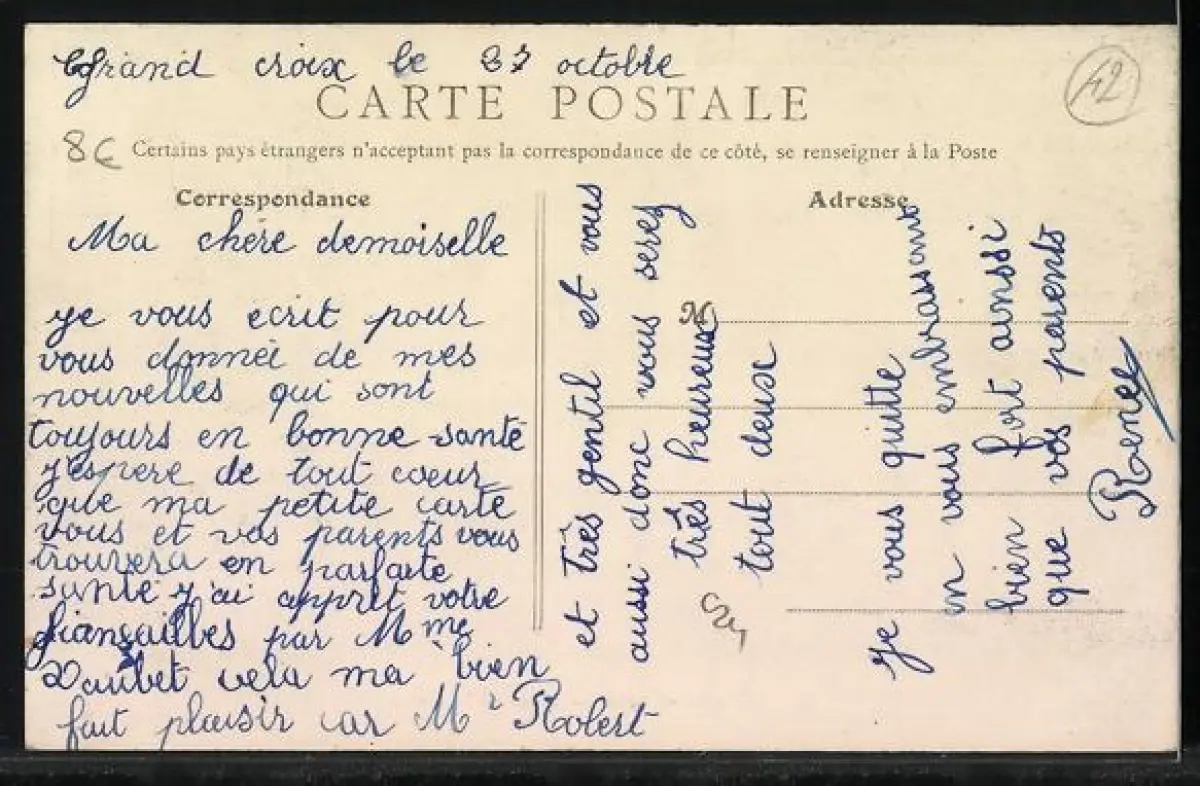 Grand croix le 27 octobre
CARTE POSTALE
42
8€
Certains pays étrangers n'acceptant pas la correspondance de ce côté, se renseigner à la Poste
Correspondance
Adresse
Ma chère demoiselle
je vous écrit pour
vous donnéi de mes
nouvelles qui sont
toujours en bonne santé
j'espere de tout cœur
que ma petite carte
vous et vos parents vous
trouvera en parfaite
santé j'ai apprit votre
fiançailles par Mme
Daubet cela ma bien
fait plaisir car Mr Robert
et très gentil et vous
aussi donc vous serez
très heureux
tout deux
je vous quitte
en vous embrassant
bien fort aussi
que vos parents
Renée